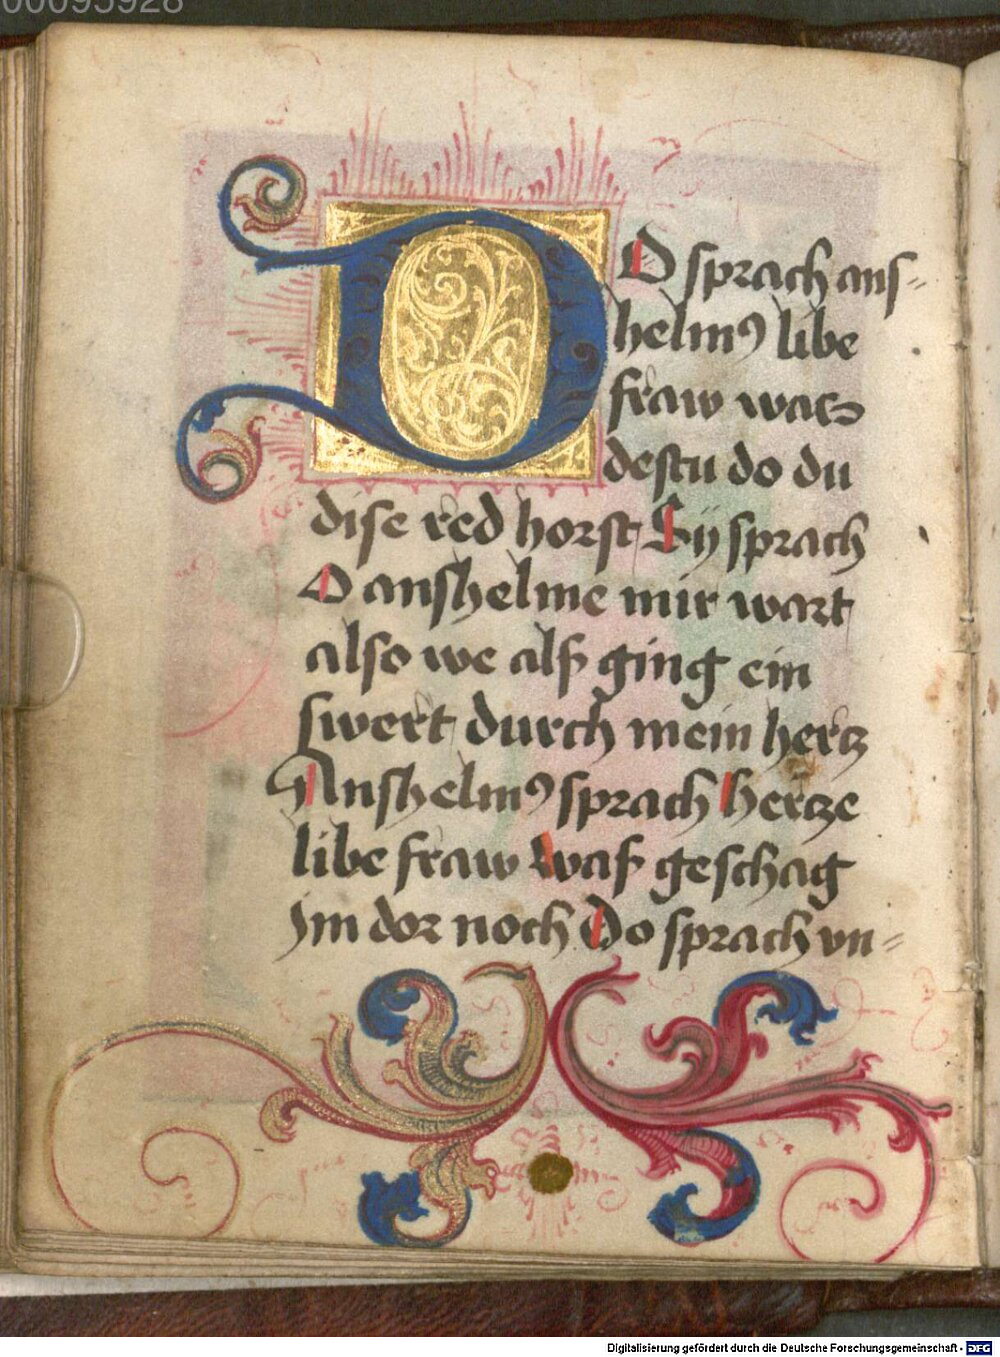 00095928
DO sprach ans⸗
helmꝰ libe
fraw was
destu do du
dise red horst Sÿ sprach
O anshelme mir wart
also we alß ging ein
swert durch mein hercz
Anshelmꝰ sprach hercze
libe fraw waß geschag
Im dor noch Do sprach vn⸗
Digitalisierung gefördert durch die Deutsche Forschungsgemeinschaft - DFG